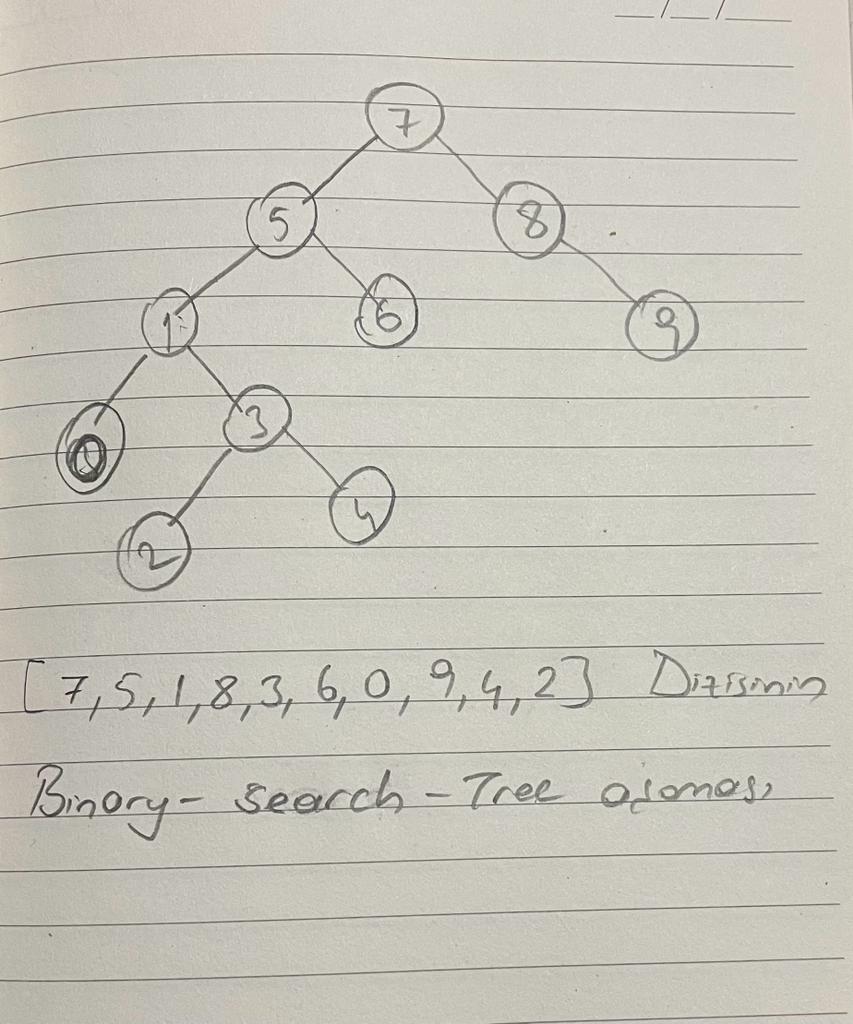 __/__/____
7
5 8
1 6 9
0 3
2 4
[7,5,1,8,3,6,0,9,4,2] Dizisinin
Binary-search-Tree aşaması